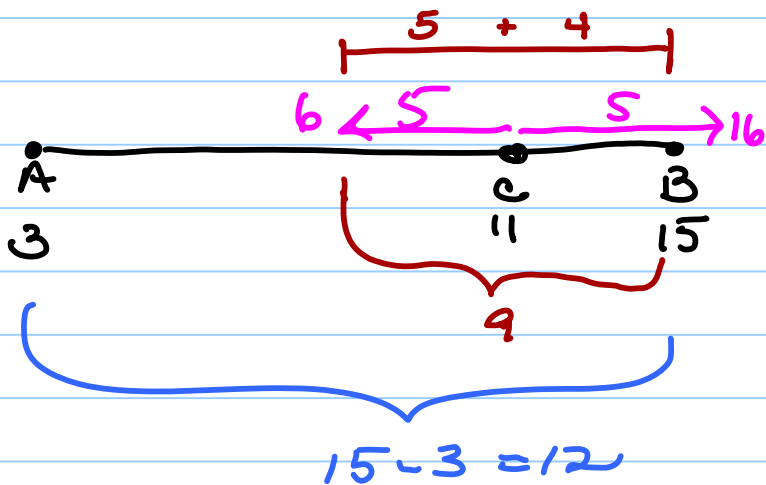 5 + 4
6 5 5 16
A C B
3 11 15
9
15-3=12